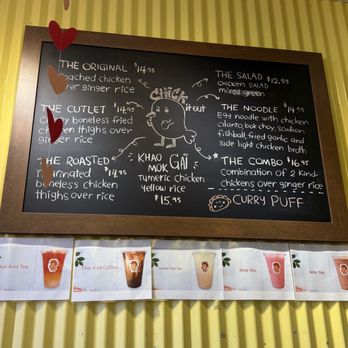 THE ORIGINAL $14.95
Poached chicken
over ginger rice
THE CUTLET $14.95
boneless fried
chicken thighs over
ginger rice
THE ROASTED
marinated $14.95
boneless chicken
thighs over rice
CHICK
it out
KHAO
MOK GAI
Tumeric chicken
yellow rice
$15.95
THE SALAD $12.95
chicken salad
mixed green
THE NOODLE $14.95
Egg noodle with chicken
cilantro, bok choy, scallion
fishball, fried garlic and
side light chicken broth
THE COMBO $16.95
combination of 2 kind
chickens over ginger rice
CURRY PUFF
Iced Tea
Thai Iced Coffee
Thai Tea
Rose Tea
Milk Tea